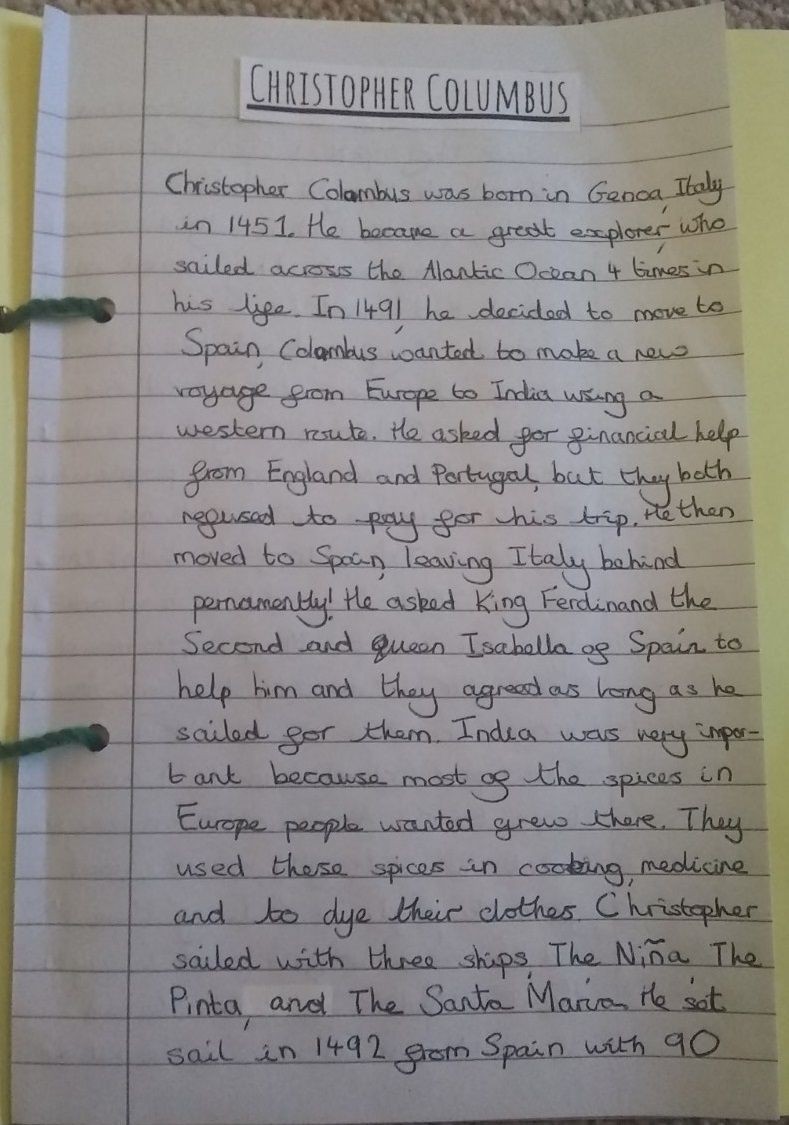 CHRISTOPHER COLUMBUS
Christopher Colombus was born in Genoa, Italy
in 1451. He became a great explorer, who
sailed across the Alantic Ocean 4 times in
his life. In 1491, he decided to move to
Spain, Colombus wanted to make a new
voyage from Europe to India using a
western route. He asked for financial help
from England and Portugal, but they both
refused to pay for his trip. He then
moved to Spain, leaving Italy behind
pernamently! He asked King Ferdinand the
Second and Queen Isabella of Spain to
help him and they agreed as long as he
sailed for them. India was very impor-
tant because most of the spices in
Europe people wanted grew there. They
used these spices in cooking, medicine
and to dye their clothes. Christopher
sailed with three ships, The Niña, The
Pinta, and The Santa Maria. He set
sail in 1492 from Spain with 90